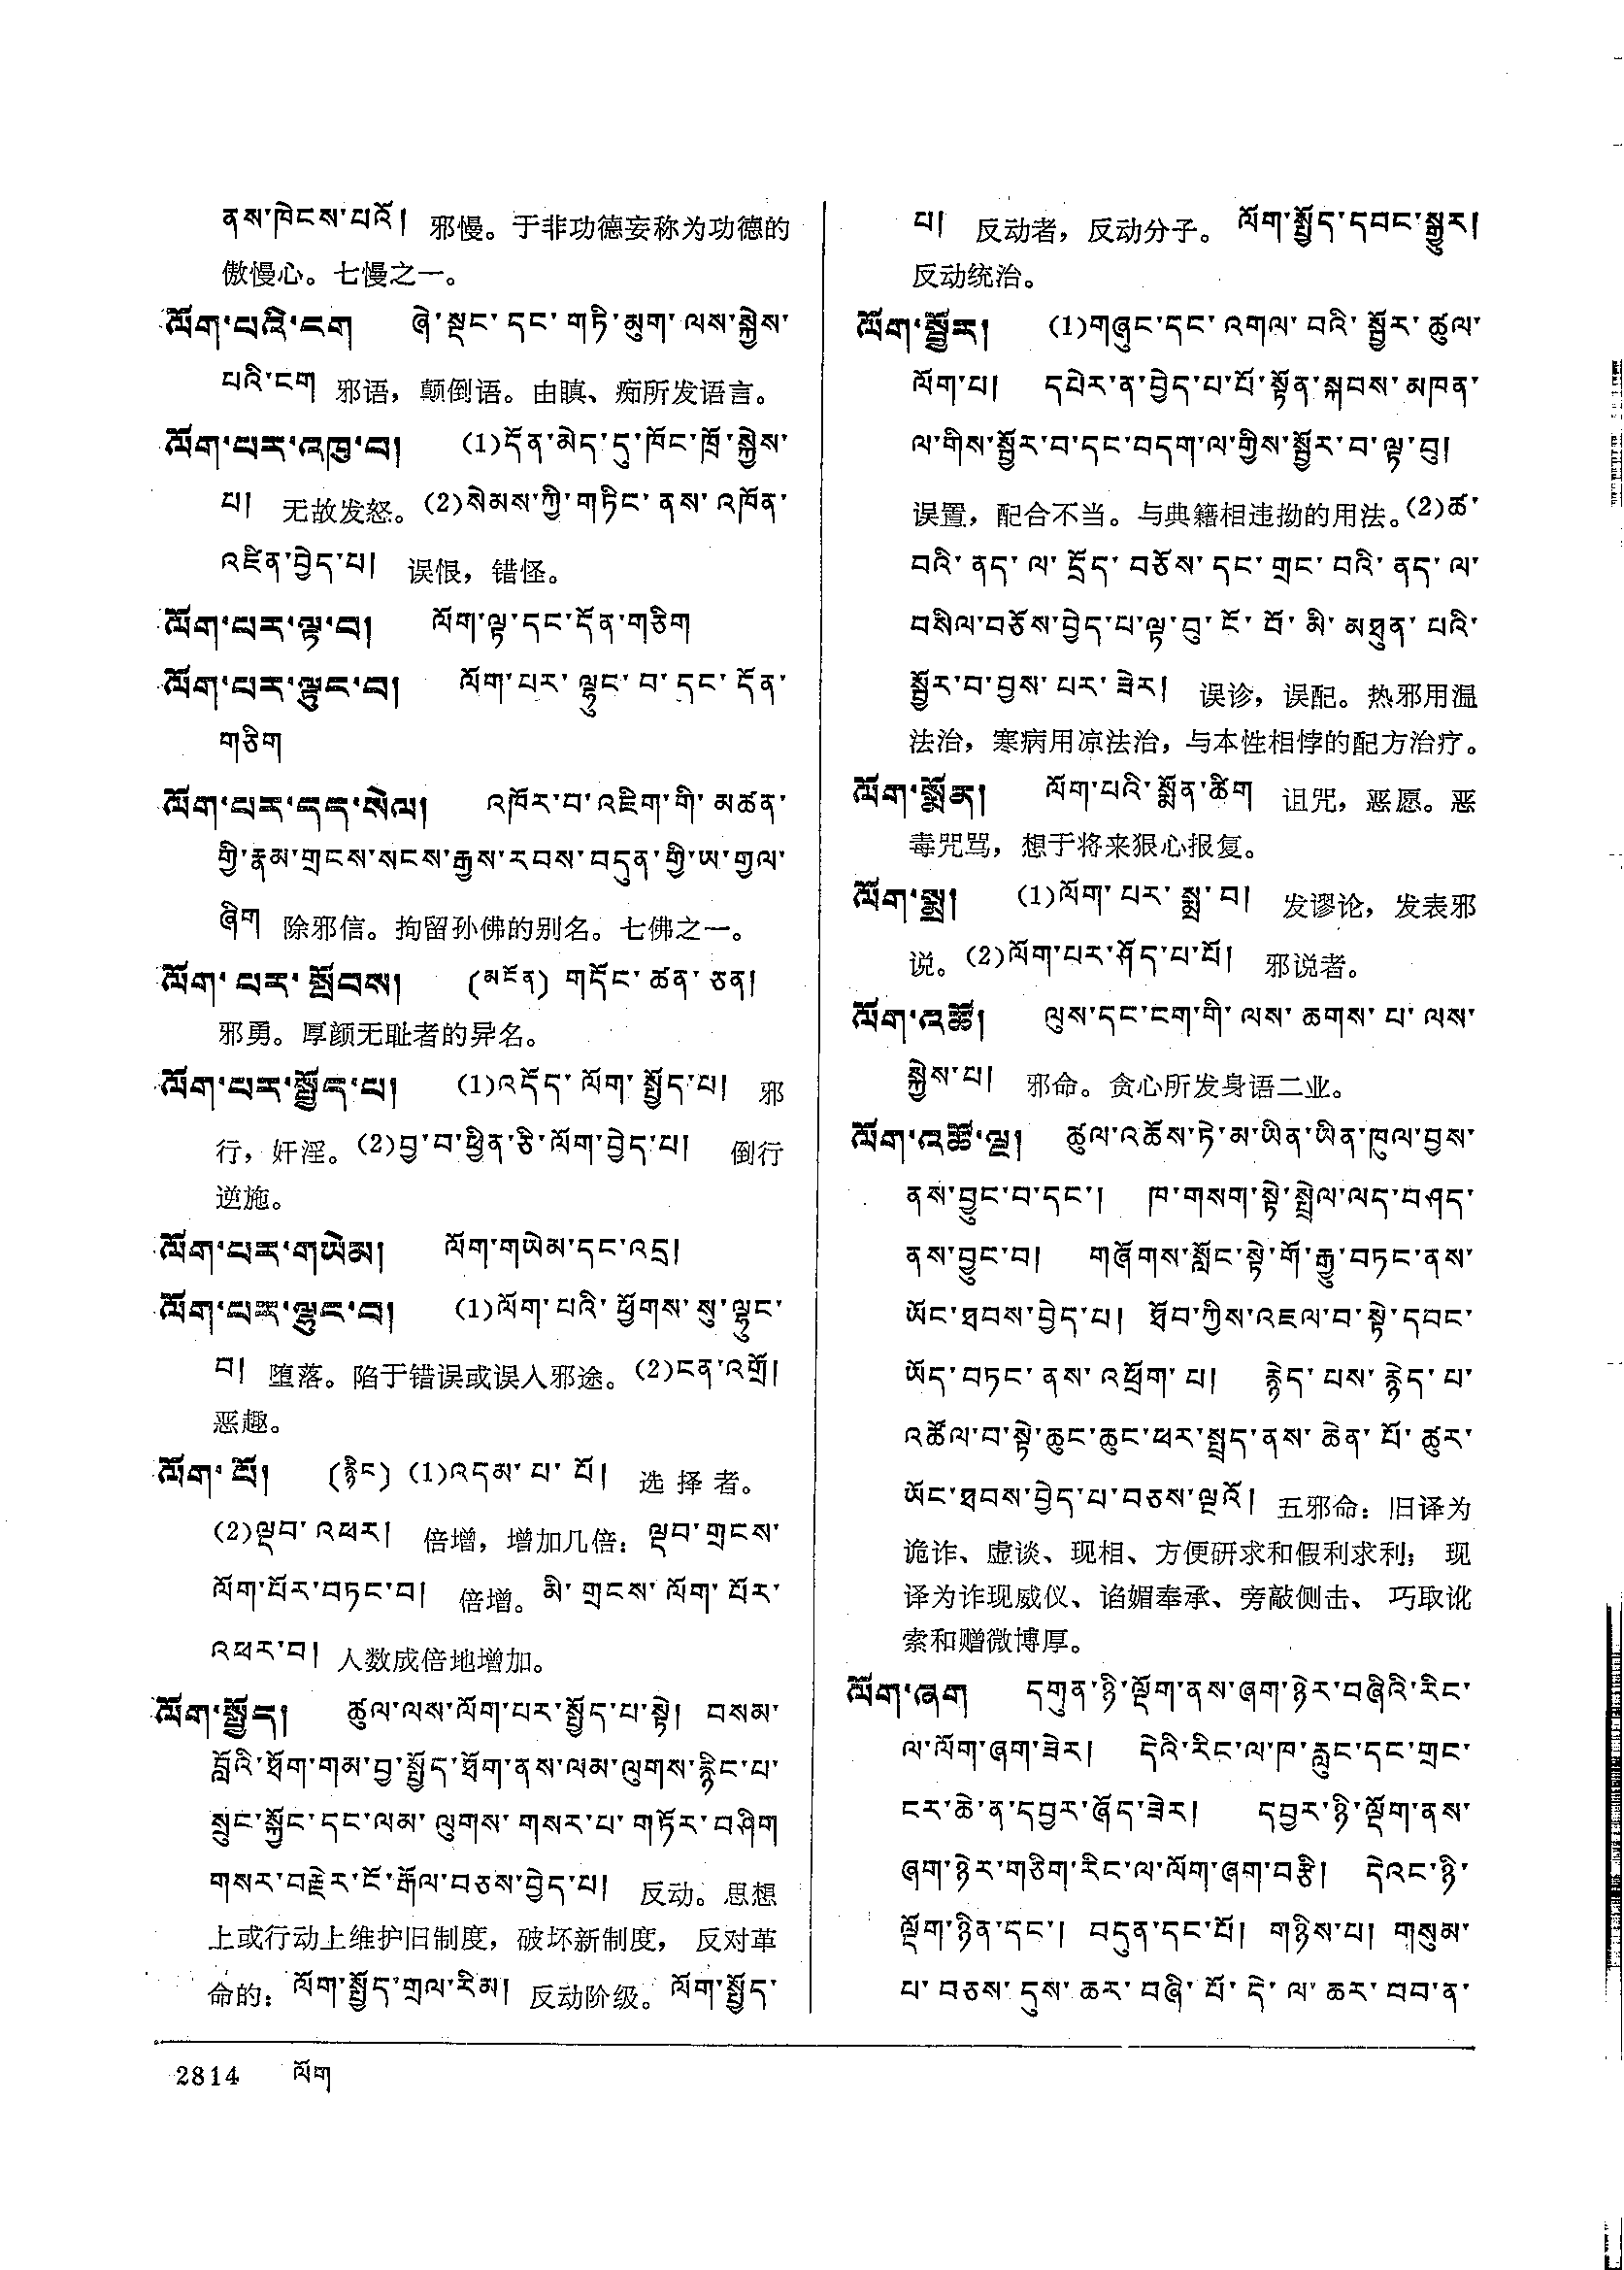 ནས་ཁེངས་པའོ། 邪慢。于非功德妄称为功德的
傲慢心。七慢之一。
ལོག་པའི་ངག ཞེ་སྡང་དང་གཏི་མུག་ལས་སྐྱེས་
པའི་ངག 邪语，颠倒语。由瞋、痴所发语言。
ལོག་པར་འཁུ་བ། (1)དོན་མེད་དུ་ཁོང་ཁྲོ་སྐྱེས་
པ། 无故发怒。(2)སེམས་ཀྱི་གཏིང་ནས་འཁོན་
འཛིན་བྱེད་པ། 误恨，错怪。
ལོག་པར་ལྟ་བ། ལོག་ལྟ་དང་དོན་གཅིག
ལོག་པར་ལྟུང་བ། ལོག་པར་ལྷུང་བ་དང་དོན་
གཅིག
ལོག་པར་དད་སེལ། འཁོར་བ་འཇིག་གི་མཚན་
གྱི་རྣམ་གྲངས་སངས་རྒྱས་རབས་བདུན་གྱི་ཨ་གྱལ་
ཞིག 除邪信。拘留孙佛的别名。七佛之一。
ལོག་པར་སྤོབས། (མངོན) གདོང་ཚན་ཅན།
邪勇。厚颜无耻者的异名。
ལོག་པར་སྤྱོད་པ། (1)འདོད་ལོག་སྤྱོད་པ། 邪
行，奸淫。(2)བྱ་བ་ཕྱིན་ཅི་ལོག་བྱེད་པ། 倒行
逆施。
ལོག་པར་གཡེམ། ལོག་གཡེམ་དང་འདྲ།
ལོག་པར་ལྷུང་བ། (1)ལོག་པའི་ཕྱོགས་སུ་ལྷུང་
བ། 堕落。陷于错误或误入邪途。(2)ངན་འགྲོ།
恶趣。
ལོག་པོ། (རྙིང) (1)འདམ་པ་པོ། 选择者。
(2)ལྡབ་འཕར། 倍增，增加几倍：ལྡབ་གྲངས་
ལོག་པོར་བཏང་བ། 倍增。མི་གྲངས་ལོག་པོར་
འཕར་བ། 人数成倍地增加。
ལོག་སྤྱོད། ཚུལ་ལས་ལོག་པར་སྤྱོད་པ་སྟེ། བསམ་
བློའི་ཐོག་གམ་བྱ་སྤྱོད་ཐོག་ནས་ལམ་ལུགས་རྙིང་པ་
སྲུང་སྐྱོང་དང་ལམ་ལུགས་གསར་པ་གཏོར་བཤིག
གསར་བརྗེར་ངོ་རྒོལ་བཅས་བྱེད་པ། 反动。思想
上或行动上维护旧制度，破坏新制度，反对革
命的：ལོག་སྤྱོད་གྲལ་རིམ། 反动阶级。ལོག་སྤྱོད་
པ། 反动者，反动分子。ལོག་སྤྱོད་དབང་སྒྱུར།
反动统治。
ལོག་སྦྱོར། (1)གཞུང་དང་འགལ་བའི་སྦྱོར་ཚུལ་
ལོག་པ། དཔེར་ན་བྱེད་པ་པོ་སྟོན་སྐབས་མཁན་
ལ་གིས་སྦྱོར་བ་དང་བདག་ལ་གྱིས་སྦྱོར་བ་ལྟ་བུ།
误置，配合不当。与典籍相违拗的用法。(2)ཚ་
བའི་ནད་ལ་དྲོད་བཅོས་དང་གྲང་བའི་ནད་ལ་
བསིལ་བཅོས་བྱེད་པ་ལྟ་བུ་ངོ་བོ་མི་མཐུན་པའི་
སྦྱོར་བ་བྱས་པར་ཟེར། 误诊，误配。热邪用温
法治，寒病用凉法治，与本性相悖的配方治疗。
ལོག་སྨོན། ལོག་པའི་སྨོན་ཚིག 诅咒，恶愿。恶
毒咒骂，想于将来狠心报复。
ལོག་སྨྲ། (1)ལོག་པར་སྨྲ་བ། 发谬论，发表邪
说。(2)ལོག་པར་ཤོད་པ་པོ། 邪说者。
ལོག་འཚོ། ལུས་དང་ངག་གི་ལས་ཆགས་པ་ལས་
སྐྱེས་པ། 邪命。贪心所发身语二业。
ལོག་འཚོ་ལྔ། ཚུལ་འཆོས་ཏེ་མ་ཡིན་ཡིན་ཁུལ་བྱས་
ནས་བྱུང་བ་དང་། ཁ་གསག་སྟེ་སྤྲེལ་ལད་བཤད་
ནས་བྱུང་བ། གཞོགས་སློང་སྟེ་གོ་རྒྱུ་བཏང་ནས་
ཡོང་ཐབས་བྱེད་པ། ཐོབ་ཀྱིས་འཇལ་བ་སྟེ་དབང་
ཡོད་བཏང་ནས་འཕྲོག་པ། རྙེད་པས་རྙེད་པ་
འཚོལ་བ་སྟེ་ཆུང་ཆུང་ཕར་སྤྲད་ནས་ཆེན་པོ་ཚུར་
ཡོང་ཐབས་བྱེད་པ་བཅས་ལྔའོ། 五邪命：旧译为
诡诈、虚谈、现相、方便研求和假利求利；现
译为诈现威仪、谄媚奉承、旁敲侧击、巧取讹
索和赠微博厚。
ལོག་ཞག དགུན་ཉི་ལྡོག་ནས་ཞག་ཉེར་བཞིའི་རིང་
ལ་ལོག་ཞག་ཟེར། དེའི་རིང་ལ་ཁ་རླུང་དང་གྲང་
ངར་ཆེ་ན་དབྱར་ཞོད་ཟེར། དབྱར་ཉི་ལྡོག་ནས་
ཞག་ཉེར་གཅིག་རིང་ལ་ལོག་ཞག་བརྩི། དེའང་ཉི་
ལྡོག་ཉིན་དང་། བདུན་དང་པོ། གཉིས་པ། གསུམ་
པ་བཅས་དུས་ཆར་བཞི་པོ་དེ་ལ་ཆར་བབ་ན་
2814 ལོག